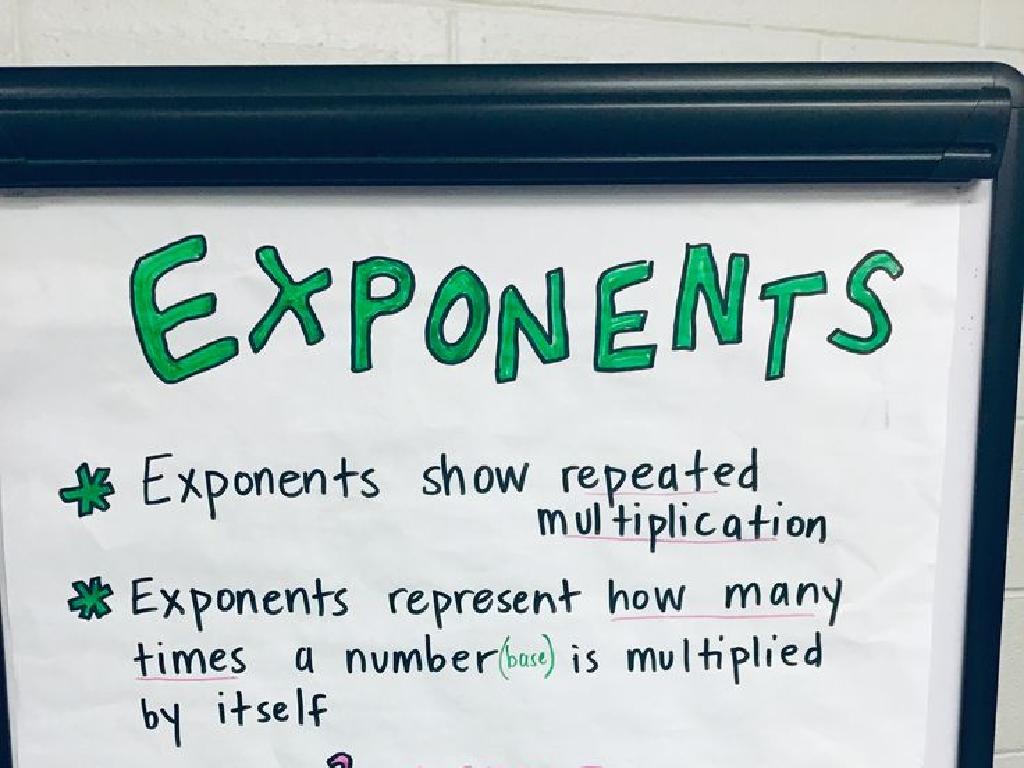 EXPONENTS
* Exponents show repeated
multiplication
* Exponents represent how many
times a number (base) is multiplied
by itself